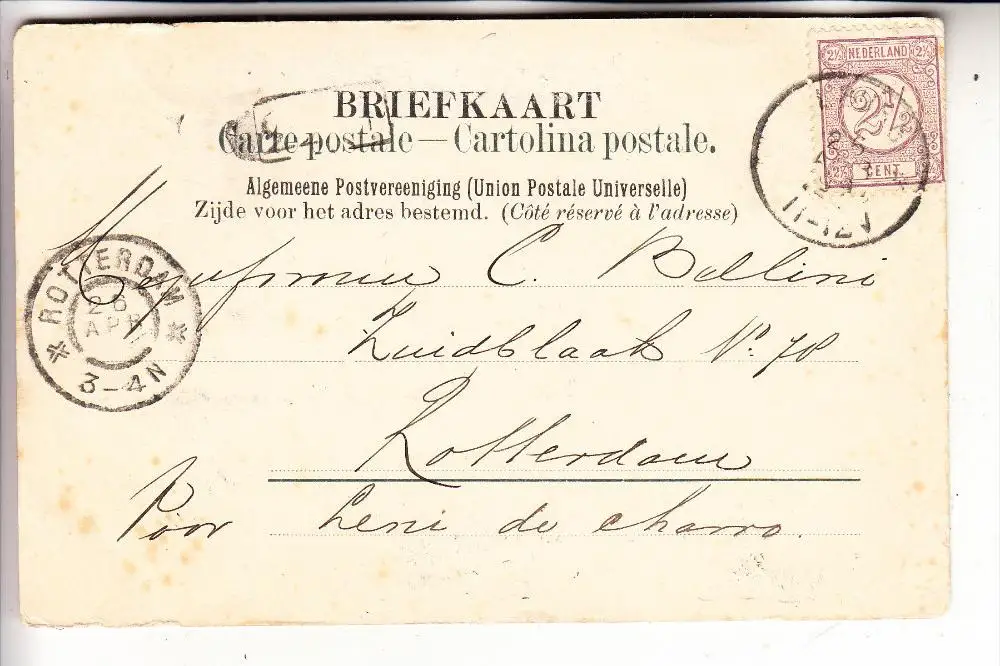 2½ NEDERLAND 2½
2½
CENT.
BRIEFKAART
Carte postale — Cartolina postale.
Algemeene Postvereeniging (Union Postale Universelle)
Zijde voor het adres bestemd. (Côté réservé à l'adresse)
11-12V
ROTTERDAM
26
APR
3-4N
Mejufrouw C. Bellini
Zuidblaak No. 78
Rotterdam
Voor Leni de charro.